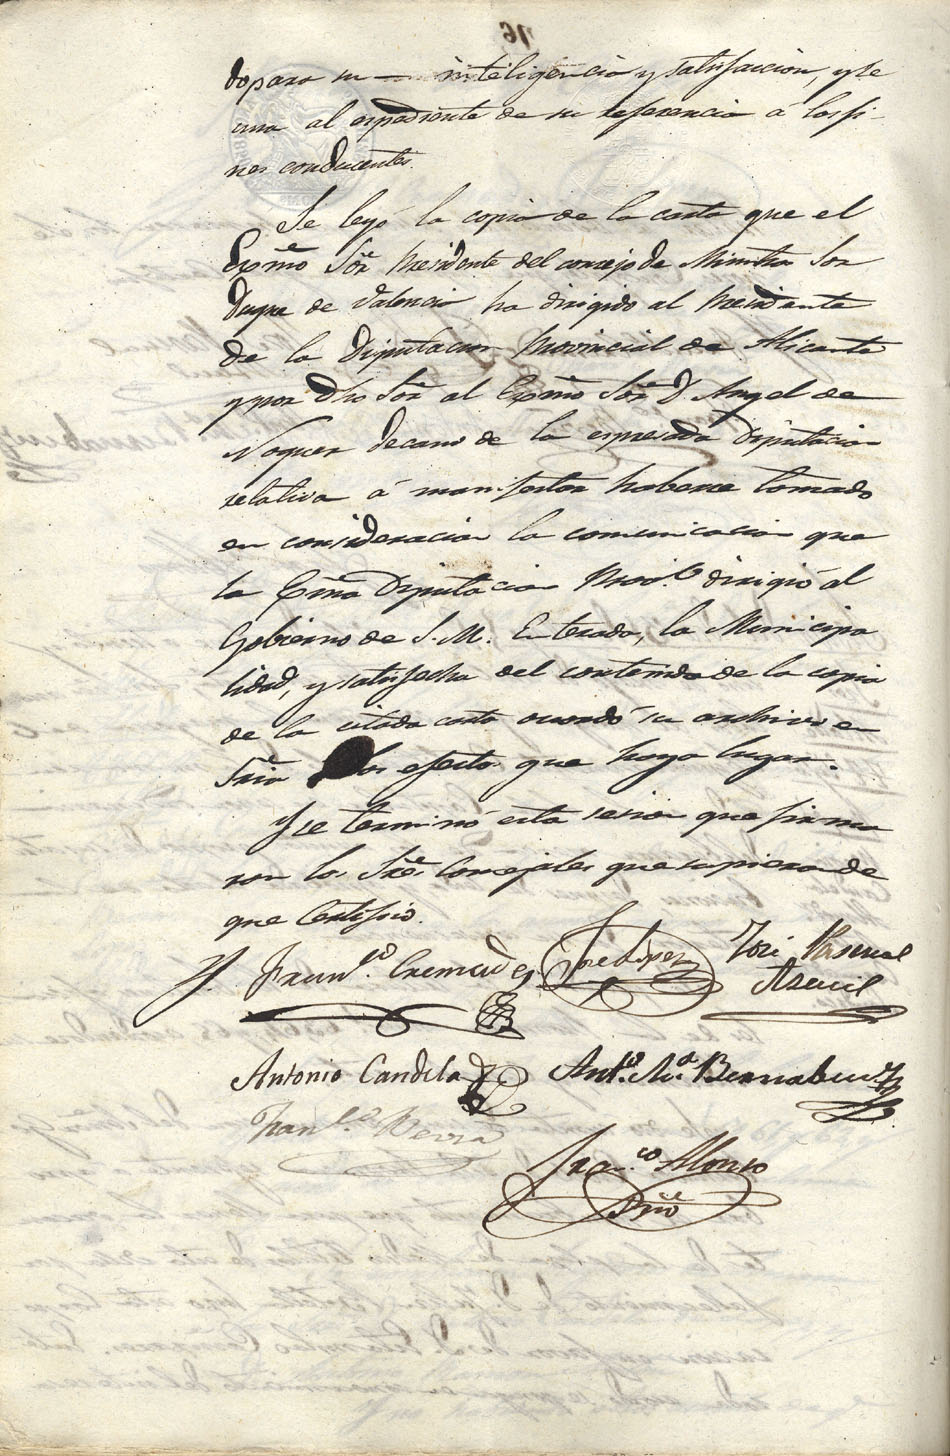 do para su — inteligencia y satisfaccion, y se
una al expediente de su referencia á los fi-
nes conducentes.
Se leyó la copia de la carta que el
Exmo Sor Presidente del consejo de Ministros Sor
Duque de Valencia ha dirigido al Presidente
de la Diputacion Provincial de Alicante
y por dho Sor al Exmo Sor D Angel de
Noguer decano de la espresada Diputacion
relativa á manifestar haberse tomado
en consideracion la comunicacion que
la Exma Diputacion Provl dirigió al
Gobierno de S. M. Enterada, la Municipa
lidad, y satisfecha del contenido de la copia
de la citada carta acordó su archivo en
Sria los efectos que haya lugar.
Y se terminó esta sesion que firma
ron los Sres Concejales que supieron de
que Certifico.
Franco Cremades José López José Pascual
Asencil
Antonio Candela Anto Ma Bernabeu
Franco
Franco Alonso
Srio